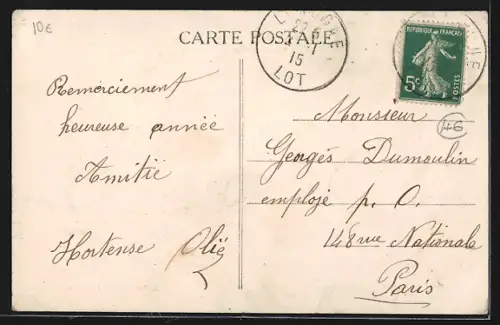 10€
CARTE POSTALE
LOT
15
RÉPUBLIQUE FRANÇAISE
5c
POSTES
46
Remerciement
heureuse année
Amitié
Hortense
Monsieur
Georges Dumoulin
employé p. O.
148 rue Nationale
Paris